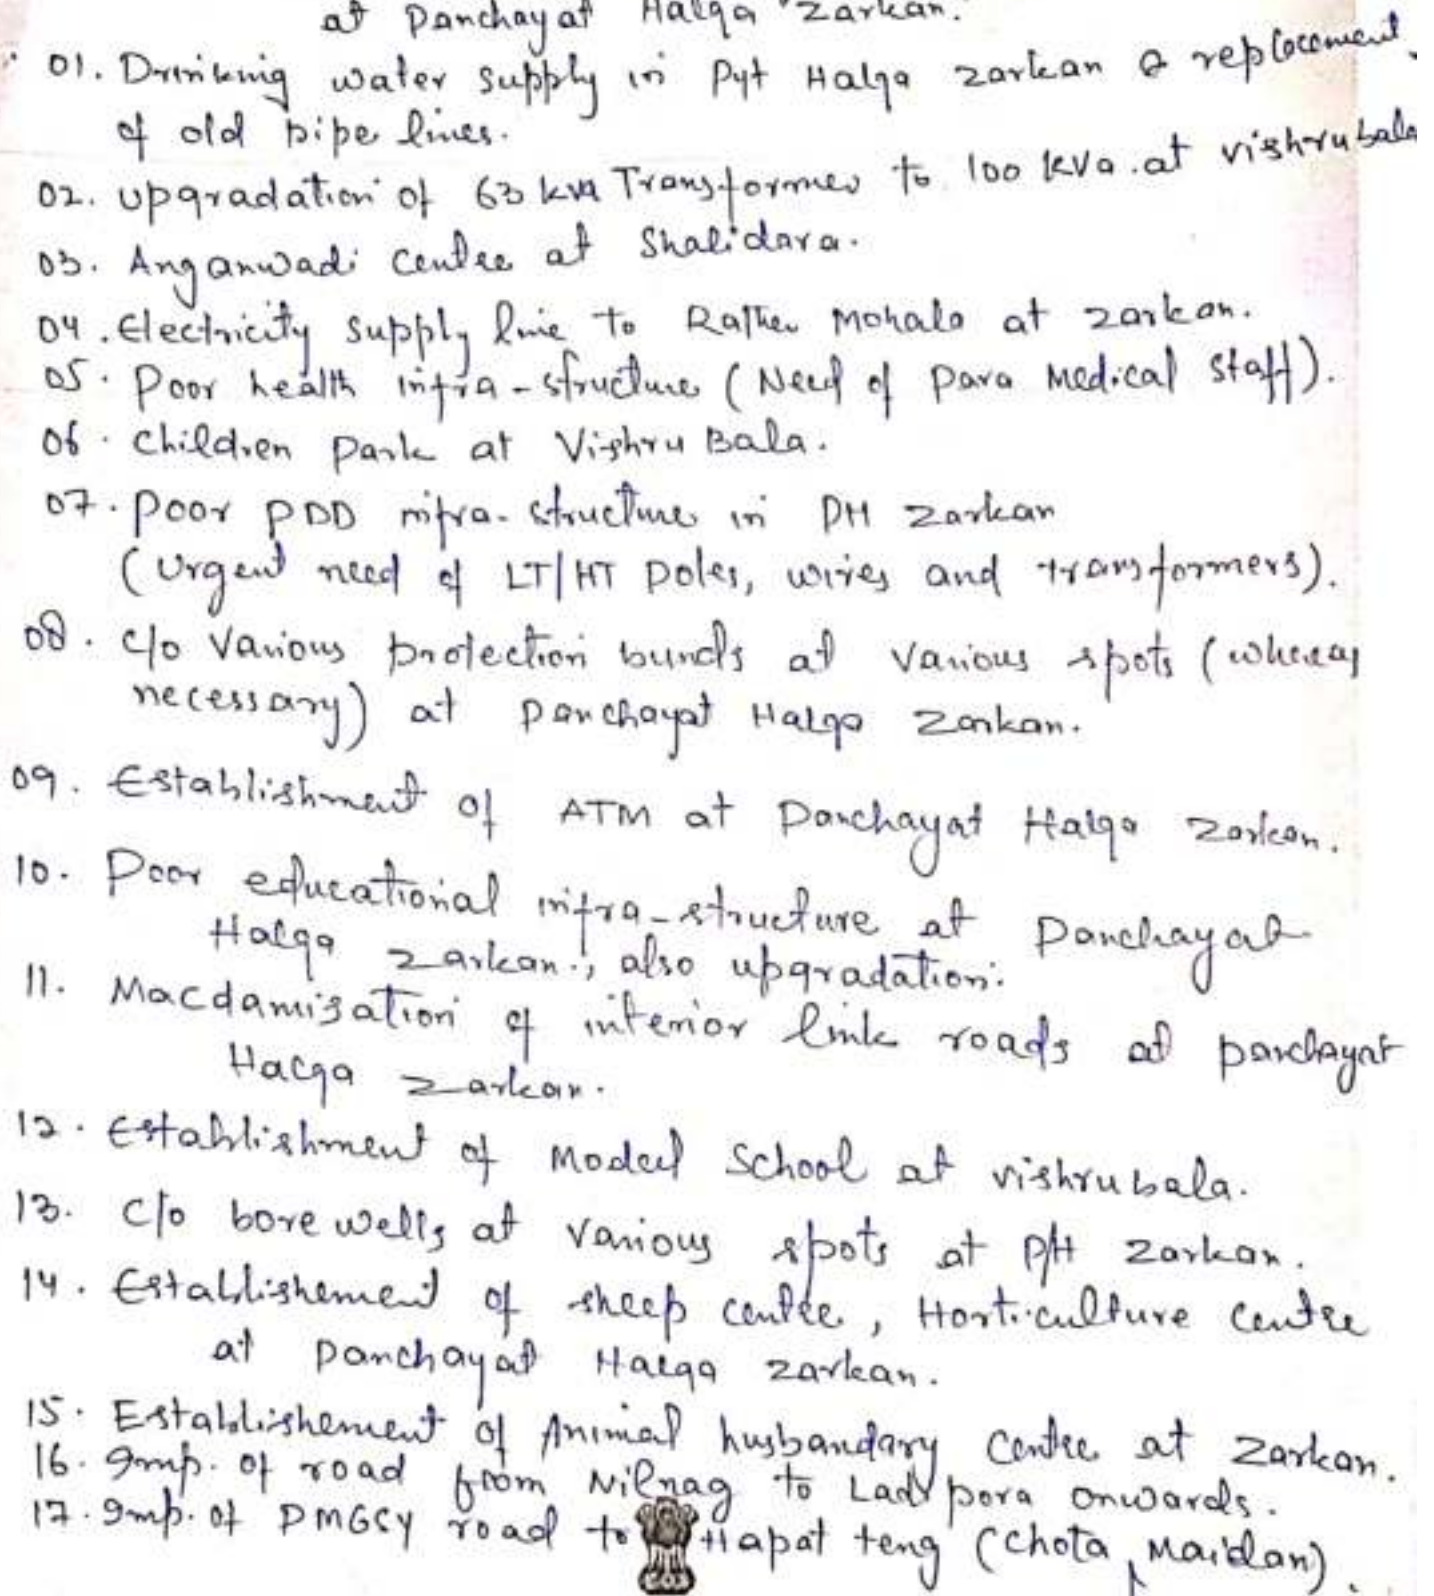 at Panchayat Halqa Zarkan.
01. Drinking water supply in Pyt Halqa Zarkan & replacement
of old pipe lines.
02. Upgradation of 63 kva Transformer to 100 kva. at vishrubala
03. Anganwadi Centre at Shalidara.
04. Electricity supply line to Rather Mohala at Zarkan.
05. Poor health infra-structure (Need of Para Medical Staff).
06. Children Park at Vishru Bala.
07. Poor PDD infra-structure in PH Zarkan
(Urgent need of LT/HT Poles, wires and transformers).
08. C/o Various protection bunds at various spots (where
necessary) at Panchayat Halqa Zarkan.
09. Establishment of ATM at Panchayat Halqa Zarkan.
10. Poor educational infra-structure at Panchayat
Halqa Zarkan., also upgradation.
11. Macdamisation of interior link roads at panchayat
Halqa Zarkan.
12. Establishment of Model School at vishrubala.
13. C/o bore wells at various spots at P/H Zarkan.
14. Establishement of sheep centre, Horticulture Centre
at Panchayat Halqa Zarkan.
15. Establishement of Animal husbandary Centre at Zarkan.
16. Imp. of road from Nilnag to Ladpora onwards.
17. Imp. of PMGSY road to Hapat teng (Chota Maidan).